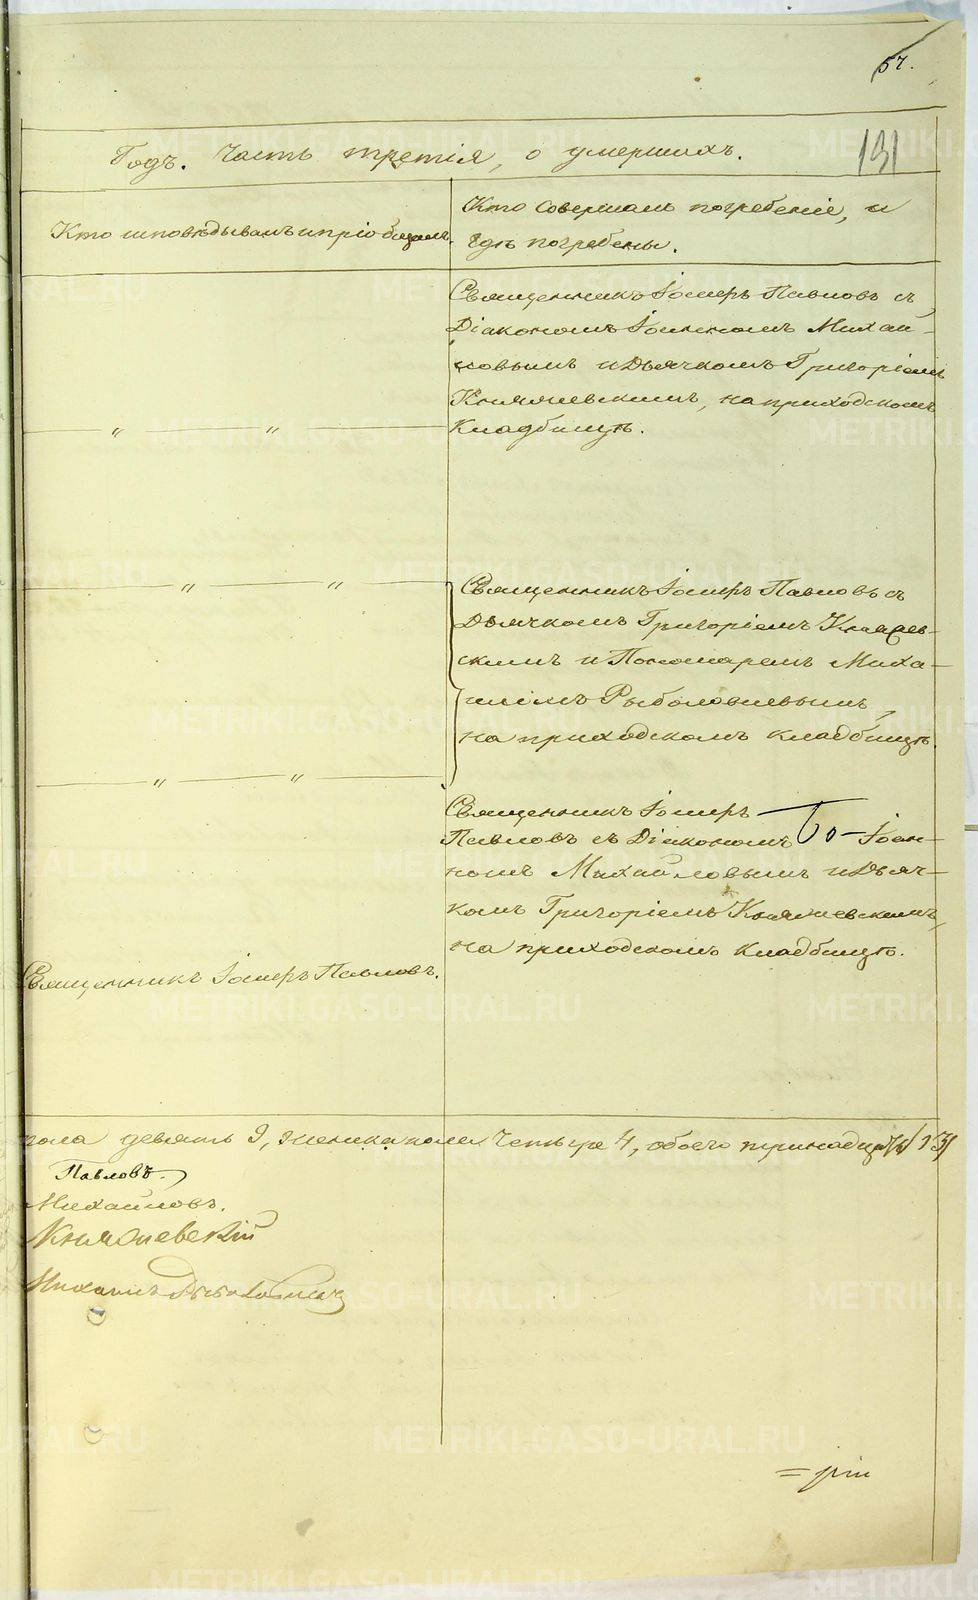 57.
131
Годъ. Часть третія, о умершихъ.
Кто исповѣдывалъ и пріобщалъ.
Кто совершалъ погребеніе, и
гдѣ погребены.
Священникъ Іосифъ Павловъ съ
Діакономъ Іоанномъ Михай-
ловымъ и Дьячкомъ Григоріемъ
Княжевскимъ, на приходскомъ
Кладбищѣ.
— „ — „ —
— „ — „ —
Священникъ Іосифъ Павловъ съ
Дьячкомъ Григоріемъ Княжев-
скимъ и Пономаремъ Миха-
иломъ Рыболовлевымъ,
на приходскомъ кладбищѣ.
— „ — „ —
Священникъ Іосифъ
Павловъ съ Діакономъ Іоан-
номъ Михайловымъ и Дьяч-
комъ Григоріемъ Княжевскимъ,
на приходскомъ кладбищѣ.
Священникъ Іосифъ Павловъ.
пола девять 9, женска пола четыре 4, обоего тринадцать 13
Павловъ.
Михайловъ.
Княжевскій
Михаилъ
METRIKI.GASO-URAL.RU